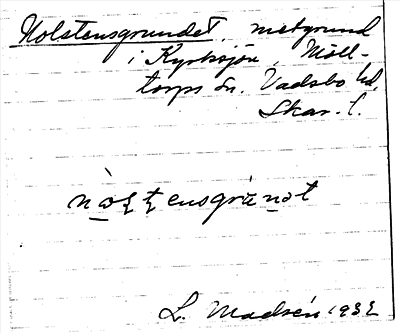 Nolstensgrundet, metgrund
i Kyrksjön, Möll-
torps sn. Vadsbo hd,
Skar. l.
L. Madsén 1932